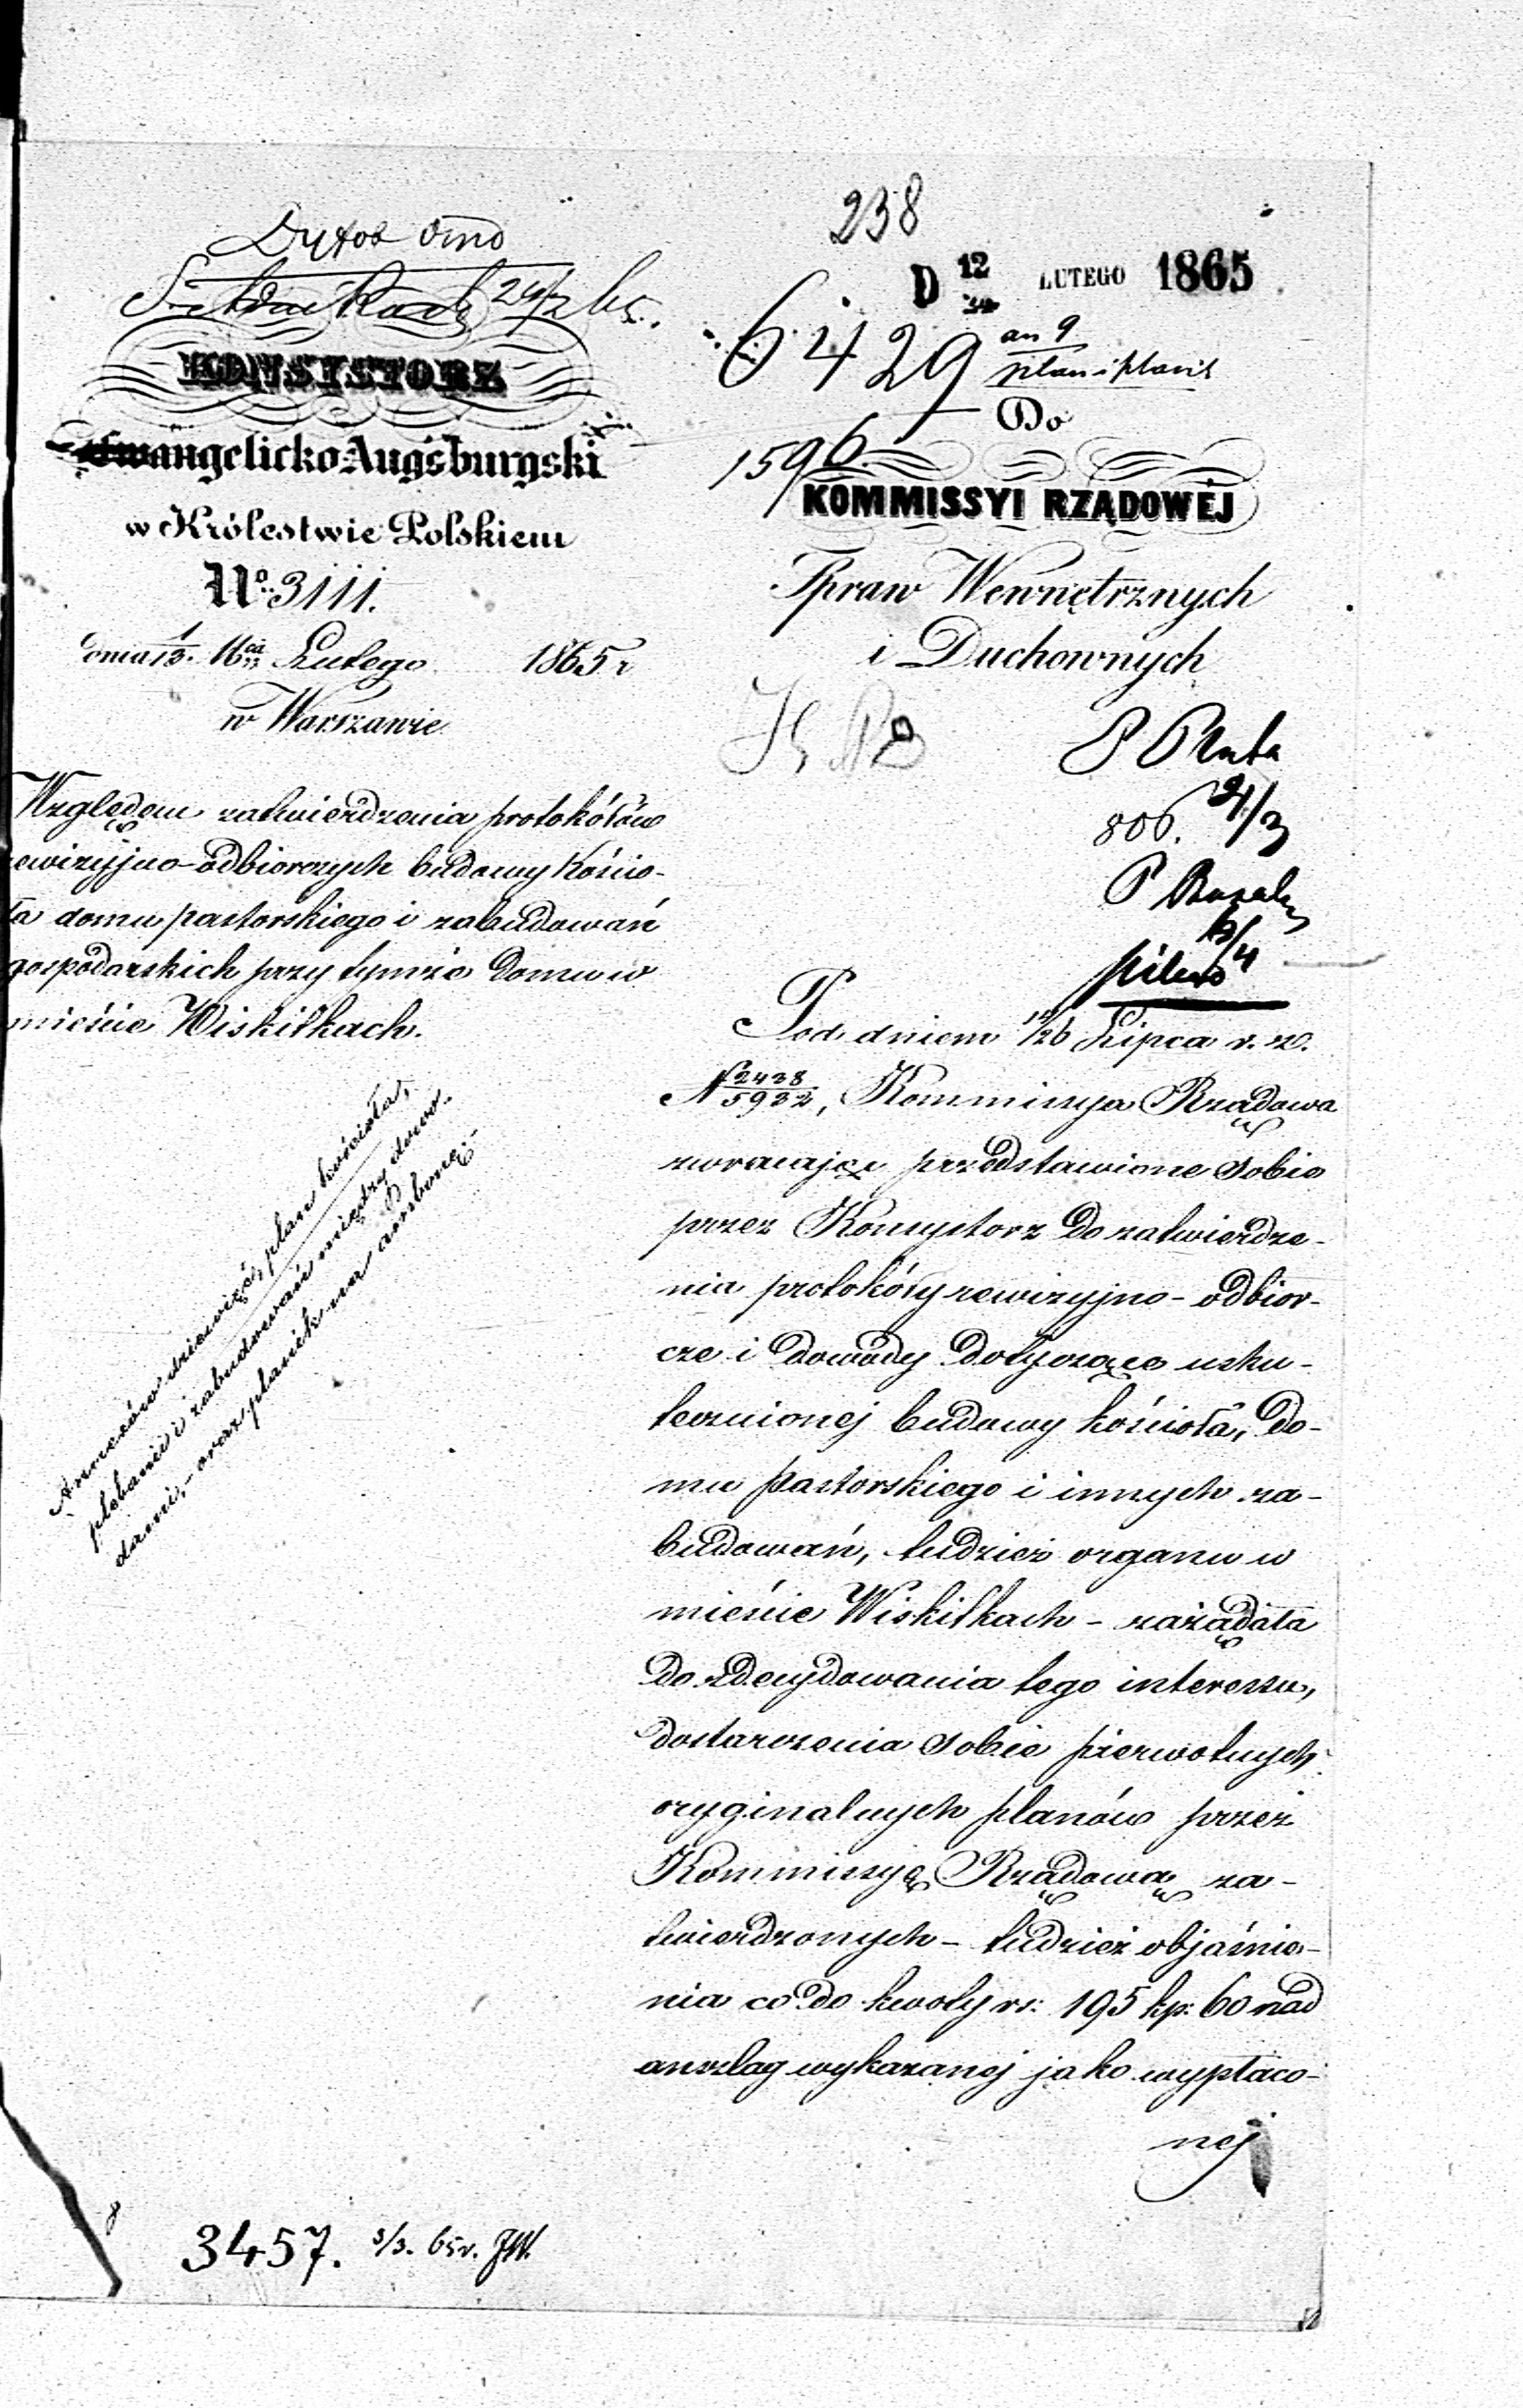 238
D 12/24 LUTEGO 1865
6429 an 9
plan i planik
1596.
KONSYSTORZ
Ewangelicko Augsburgski
w Królestwie Polskiem
No. 3111.
dnia 1/13. Mca Lutego 1865 r
w Warszawie
Względem zatwierdzenia protokółów
rewizyjno-odbiorczych budowy kościo-
ła domu pastorskiego i zabudowań
gospodarskich przy tymże domu w
mieście Wiskitkach.
Annexów dziewięć, plan kościoła,
plebanii i zabudowań między dowo-
dami, - oraz planik na ambonę.
Do
KOMMISSYI RZĄDOWÉJ
Spraw Wewnętrznych
i Duchownych
806. 21/3
14/4
pilno
Pod dniem 14/26 Lipca r. z.
N 2438/5932, Kommissya Rządowa
zwracając przedstawione sobie
przez Konsystorz do zatwierdze-
nia protokóły rewizyjno-odbior-
cze i dowody dotyczące usku-
tecznionej budowy kościoła, do-
mu pastorskiego i innych za-
budowań, tudzież organu w
mieście Wiskitkach - zażądała
do zdecydowania tego interessu,
dostarczenia sobie pierwotnych
oryginalnych planów przez
Kommissyę Rządową za-
twierdzonych - tudzież objaśnie-
nia co do kwoty rs: 195 kp: 60 nad
anszlag wykazanej jako wypłaco-
nej
3457. 3/3. 65 r. JW.